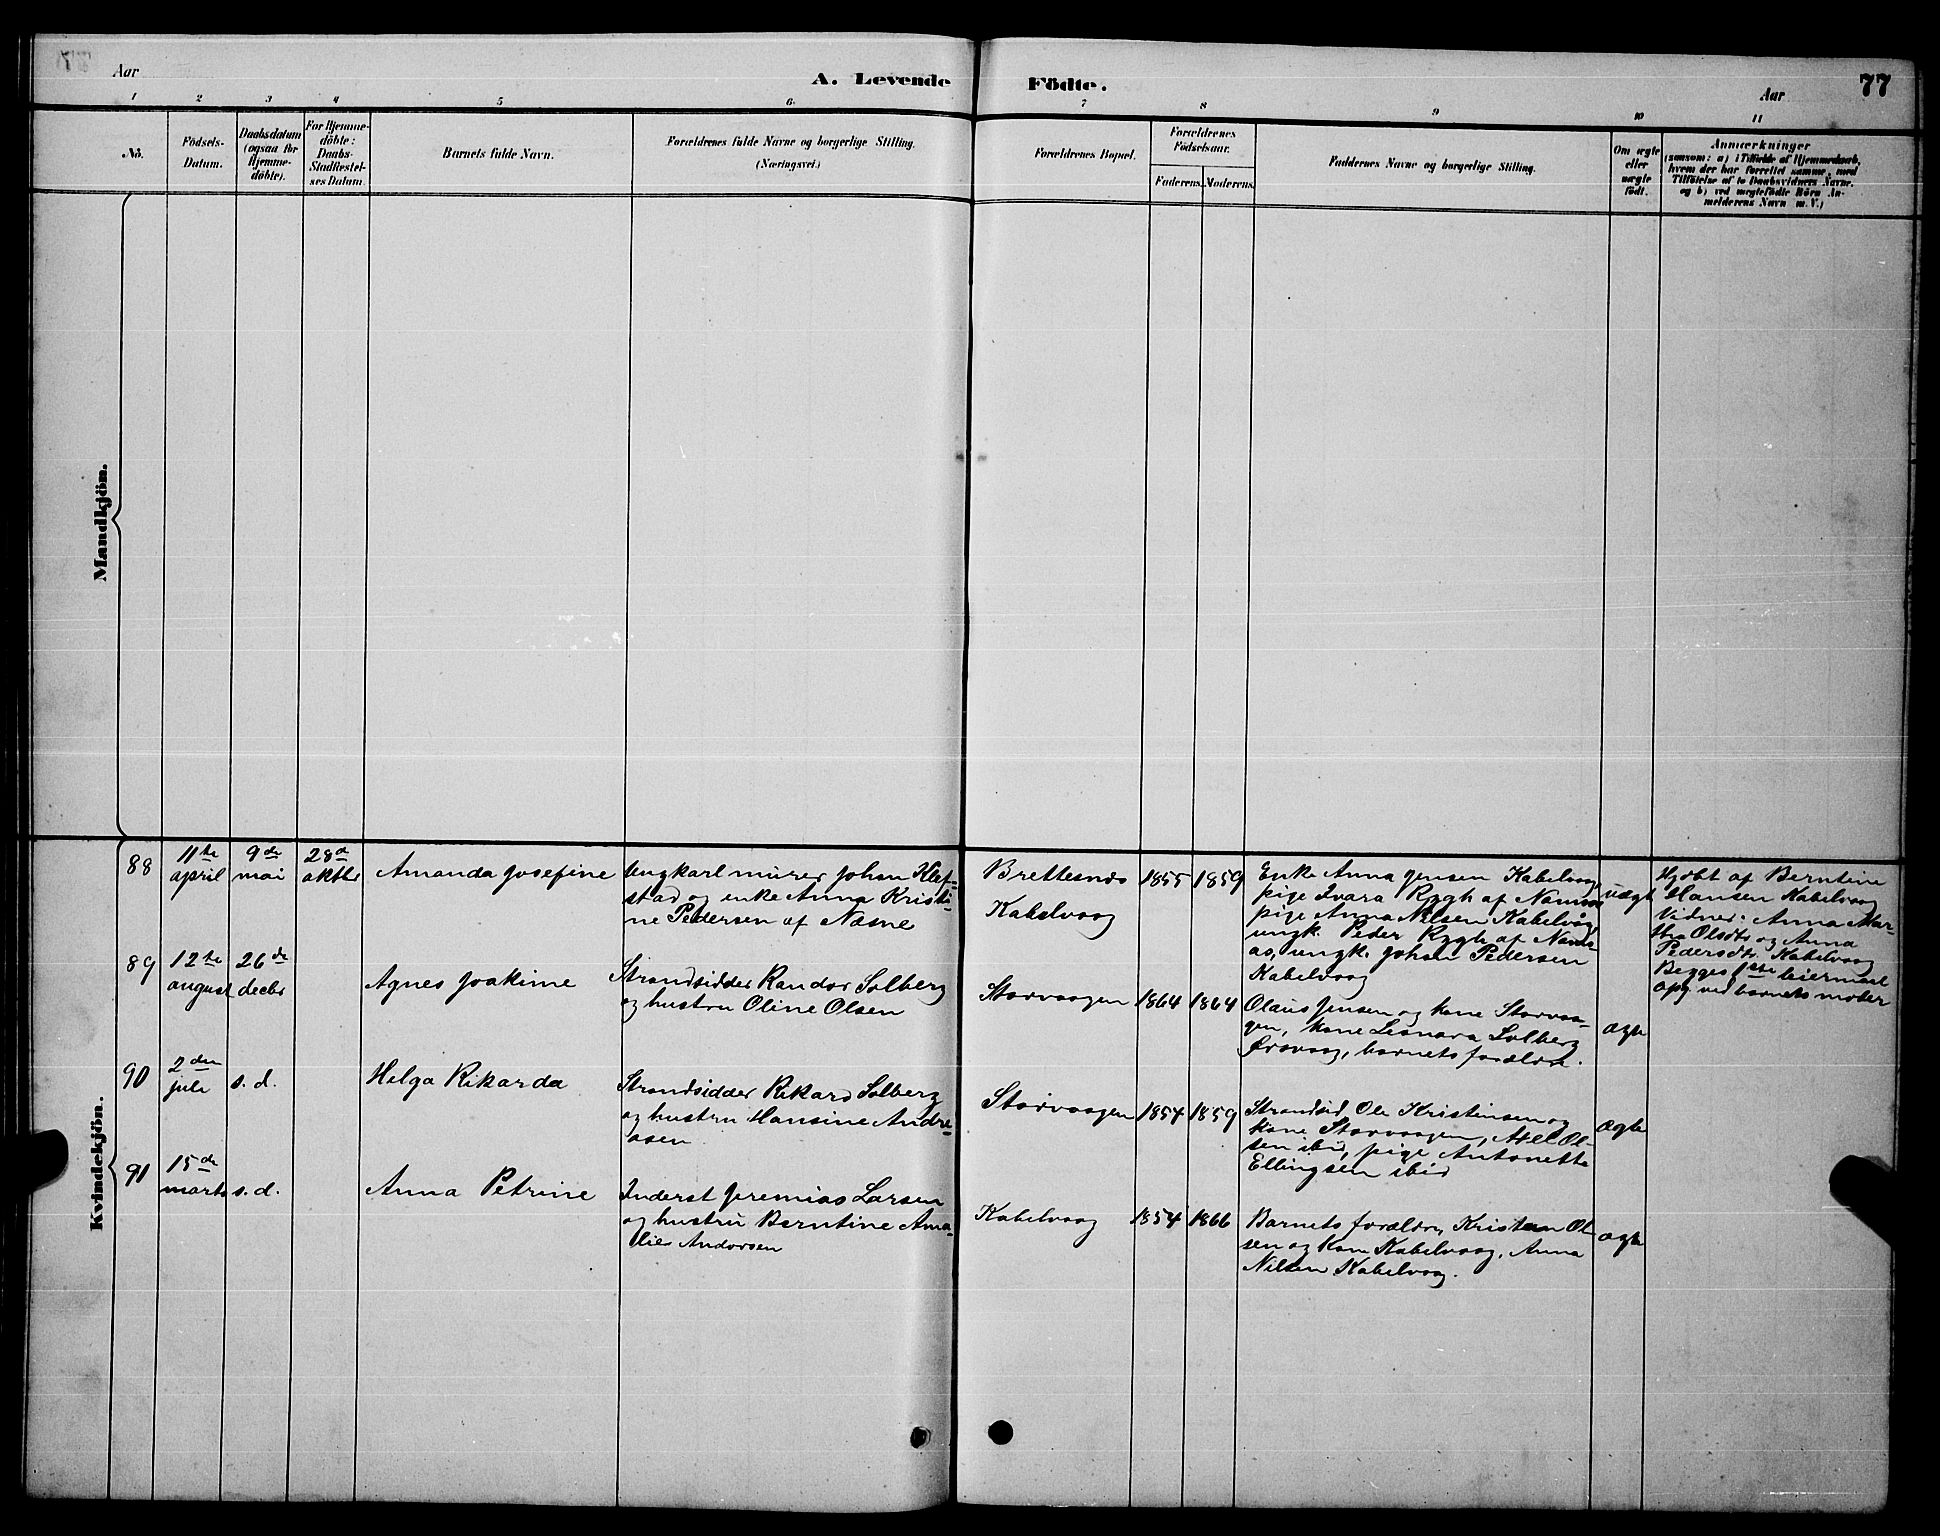 Aar
A. Levende
Födte.
Aar
77
1 2 3 4 5 6. 7 8 9 10 11
No.
Födsels-
Datum.
Daabsdatum
(ogsaa for
Hjemme-
döbte).
For Hjemme-
döbte:
Daabs-
Stadfæstel-
ses Datum.
Barnets fulde Navn.
Forældrenes fulde Navne og borgerlige Stilling.
(Næringsvei.)
Forældrenes Bopæl.
Forældrenes
Födselsaar.
Faderens.
Moderens.
Faddernes Navne og borgerlige Stilling.
Om ægte
eller
uægte
födt.
Anmærkninger
(saasom: a) i Tilfælde af Hjemmedaab,
hvem der har forrettet samme, med
Tilföielse af to Daabsvidners Navne.
og b) ved uægtefödte Börn An-
melderens Navn m. V.)
Mandkjön.
Kvindekjön.
88
11te
april
9de
mai
28de
oktbr
Amanda Josefine
Ungkarl murer Johan Klep-
stad og enke Anna Kristi-
ne Pedersen af Næsne
Brettesnæs
Kabelvaag
1855
1859
Enke Anna Jensen Kabelvaag
pige Ivara Rygh af Namsos
pige Anna Nilsen Kabelvåg,
ungk. Peder Rygh af Nams-
os, ungk. Johan Pedersen
Kabelvaag
uægt
Hjdbt af Berntine
Hansen Kabelvaag
Vidner: Anna Mar-
tha Olsdtr og Anna
Pedersdtr. Kabelvaag
Begges 1ste leiermaal
opg ved barnets moder
89
12te
august
26de
decbr
Agnes Joakime
Strandsidder Randor Solberg
og hustru Oline Olsen
Storvaagen
1864
1864
Olaus Jensen og kone Storvaa-
gen, kone Leonara Solberg
Ørsvaag, barnets forældre.
ægte
90
2den
juli
s. d.
Helga Rikarda
Strandsidder Rikard Solberg
og hustru Hansine Andre-
asen
Storvaagen
1854
1859
Strandsid. Ole Kristensen og
kone Storvaagen, Axel Ol-
sen ibid, pige Antonette
Ellingsen ibid
ægte
91
15de
marts
s. d.
Anna Petrine
Inderst Jeremias Larsen
og hustru Berntine Ama-
lie Andersen
Kabelvaag
1854
1866
Barnets forældre, Kristian Ol-
sen og kone Kabelvaag, Anna
Nilsen Kabelvaag.
ægte